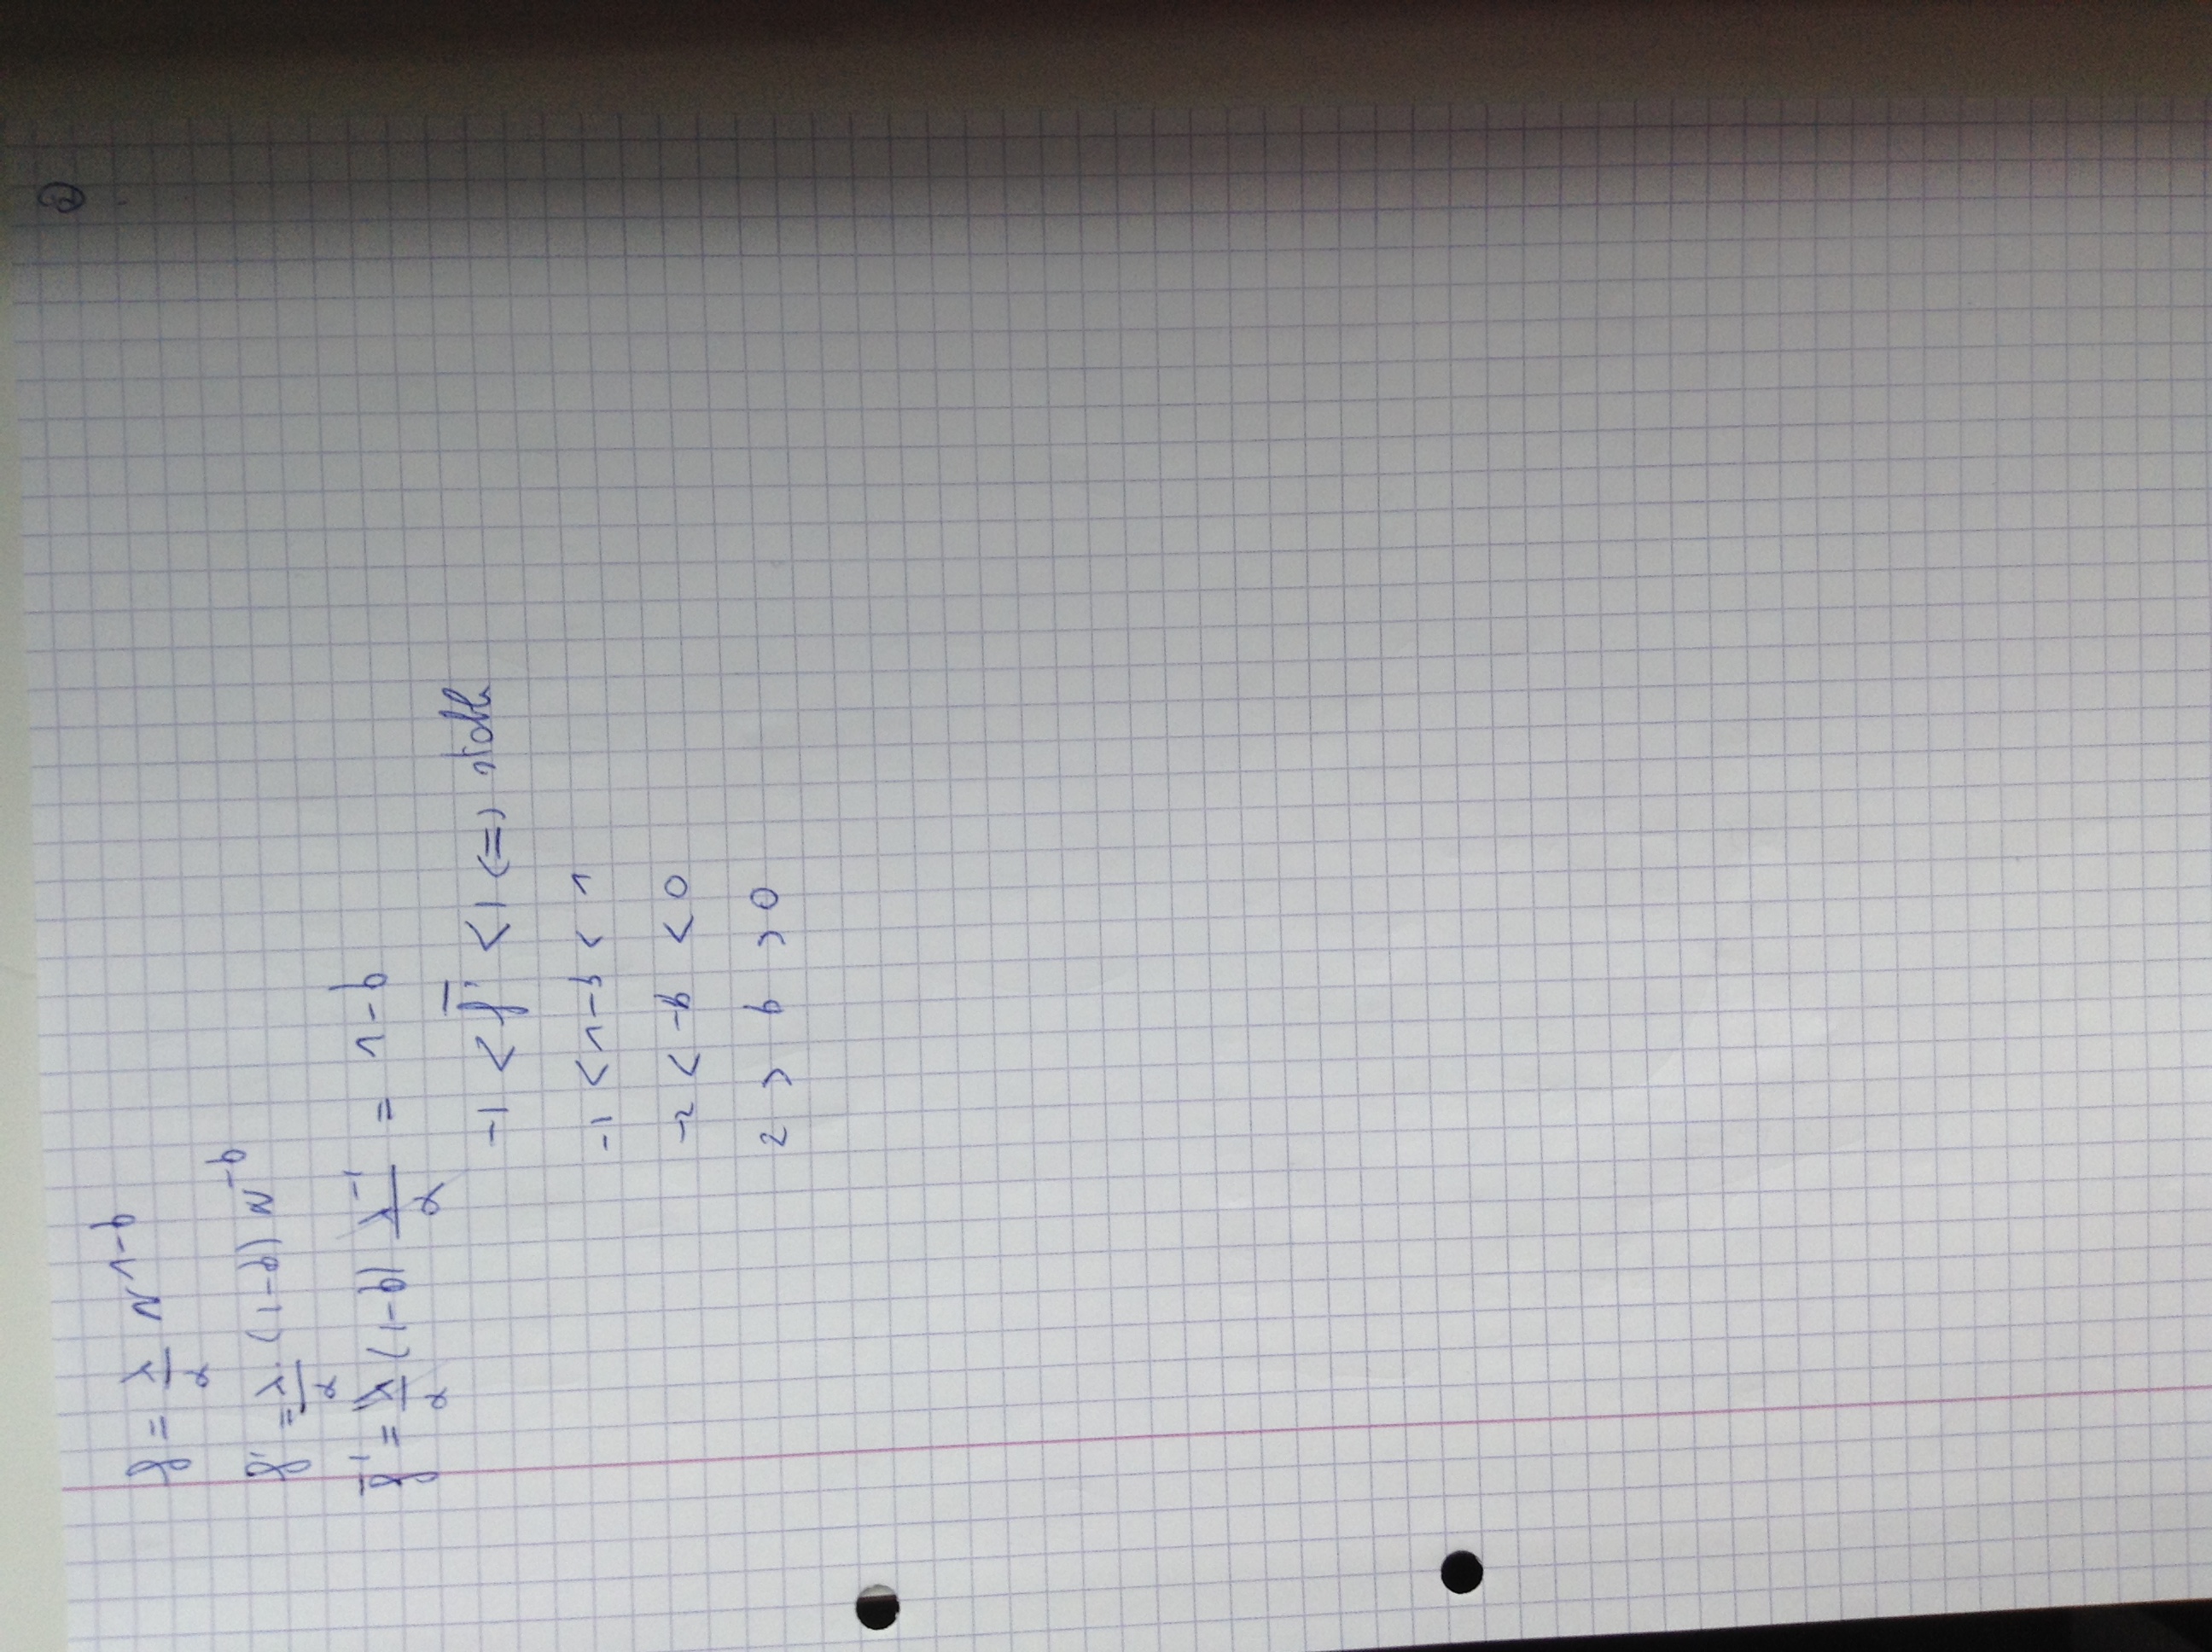 ②
f = λ/α N^(1-b)
f' = λ/α (1-b) N^(-b)
f̄' = λ/α (1-b) λ^(-1)/α = 1-b
-1 < f̄' < 1 (=) stable
-1 < 1-b < 1
-2 < -b < 0
2 > b > 0